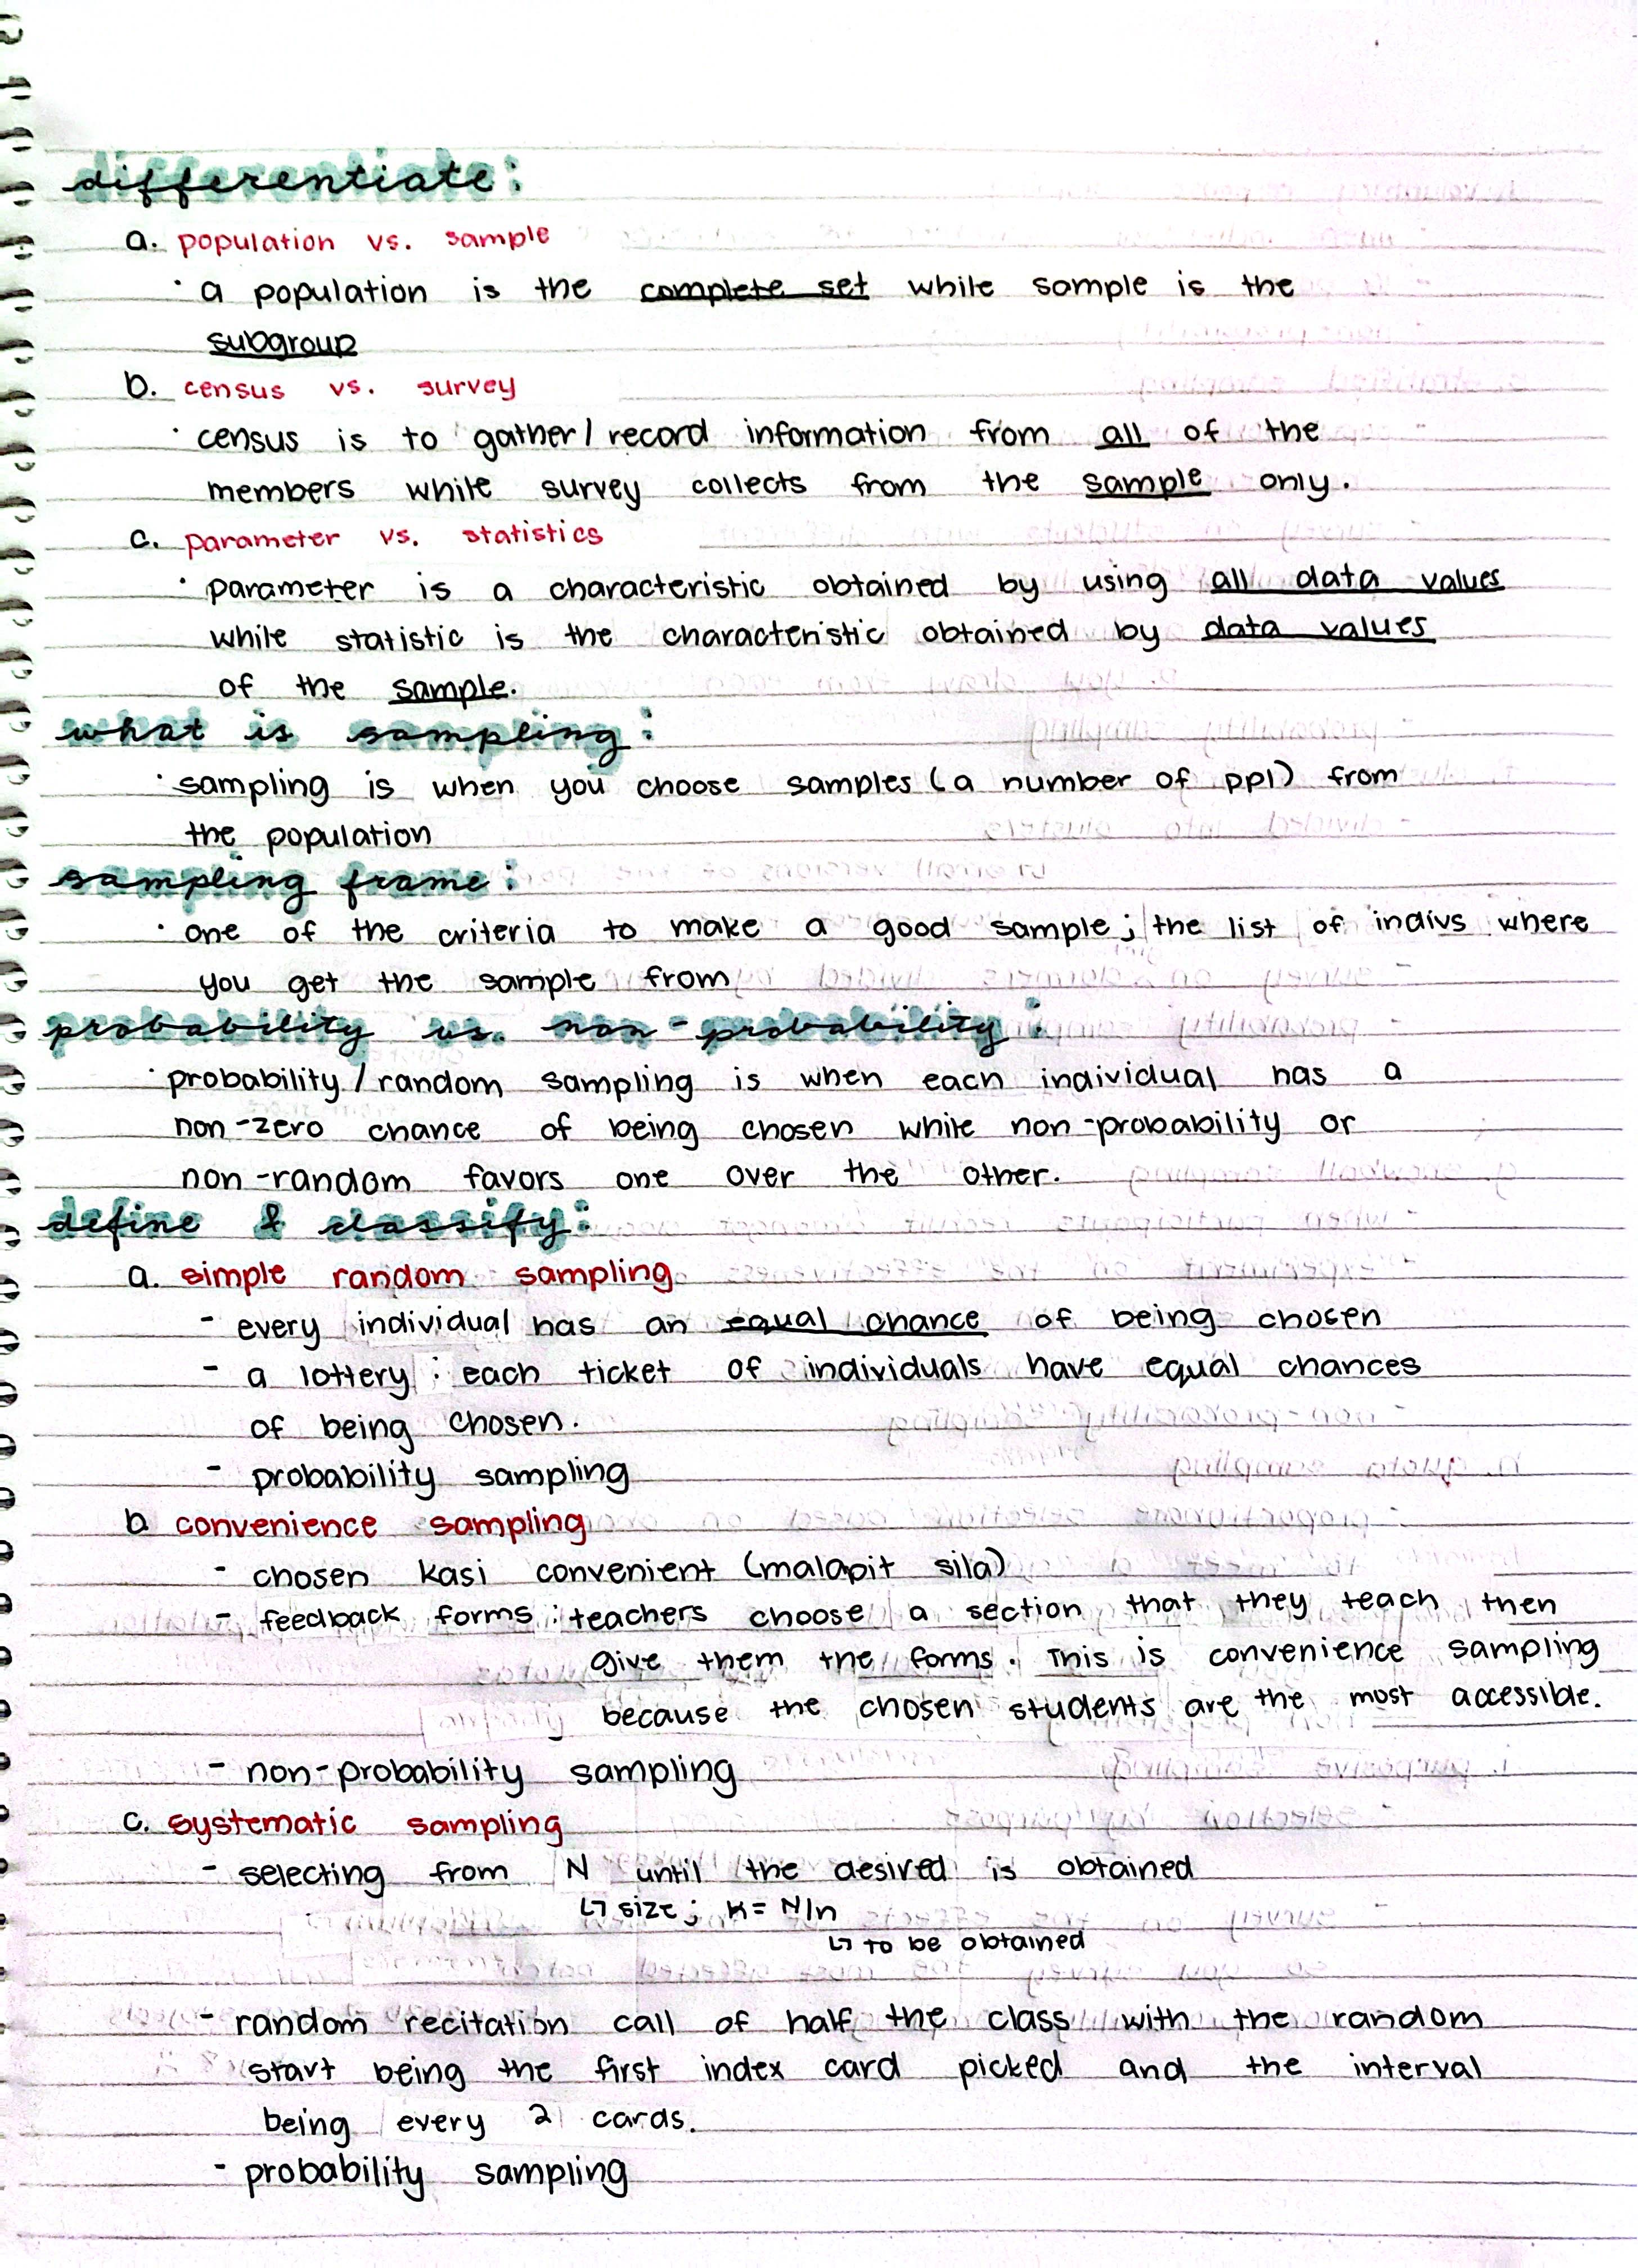 differentiate:
a. population vs. sample
· a population is the complete set while sample is the
subgroup
b. census vs. survey
· census is to gather/record information from all of the
members while survey collects from the sample only.
c. parameter vs. statistics
· parameter is a characteristic obtained by using all data values
while statistic is the characteristic obtained by data values
of the sample.
what is sampling:
· sampling is when you choose samples (a number of ppl) from
the population
sampling frame:
· one of the criteria to make a good sample; the list of indivs where
you get the sample from
probability vs. non-probability:
· probability/random sampling is when each individual has a
non-zero chance of being chosen while non-probability or
non-random favors one over the other.
define & classify:
a. simple random sampling
- every individual has an equal chance of being chosen
- a lottery : each ticket of individuals have equal chances
of being chosen.
- probability sampling
b convenience sampling
- chosen kasi convenient (malapit sila)
- feedback forms : teachers choose a section that they teach then
give them the forms. This is convenience sampling
because the chosen students are the most accessible.
- non-probability sampling
c. systematic sampling
- selecting from N until the desired is obtained
↳ size; k = N/n
↳ to be obtained
- random recitation call of half the class with the random
start being the first index card picked and the interval
being every 2 cards.
- probability sampling